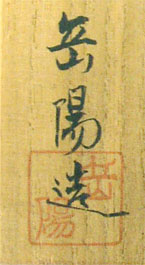 岳陽造
岳陽